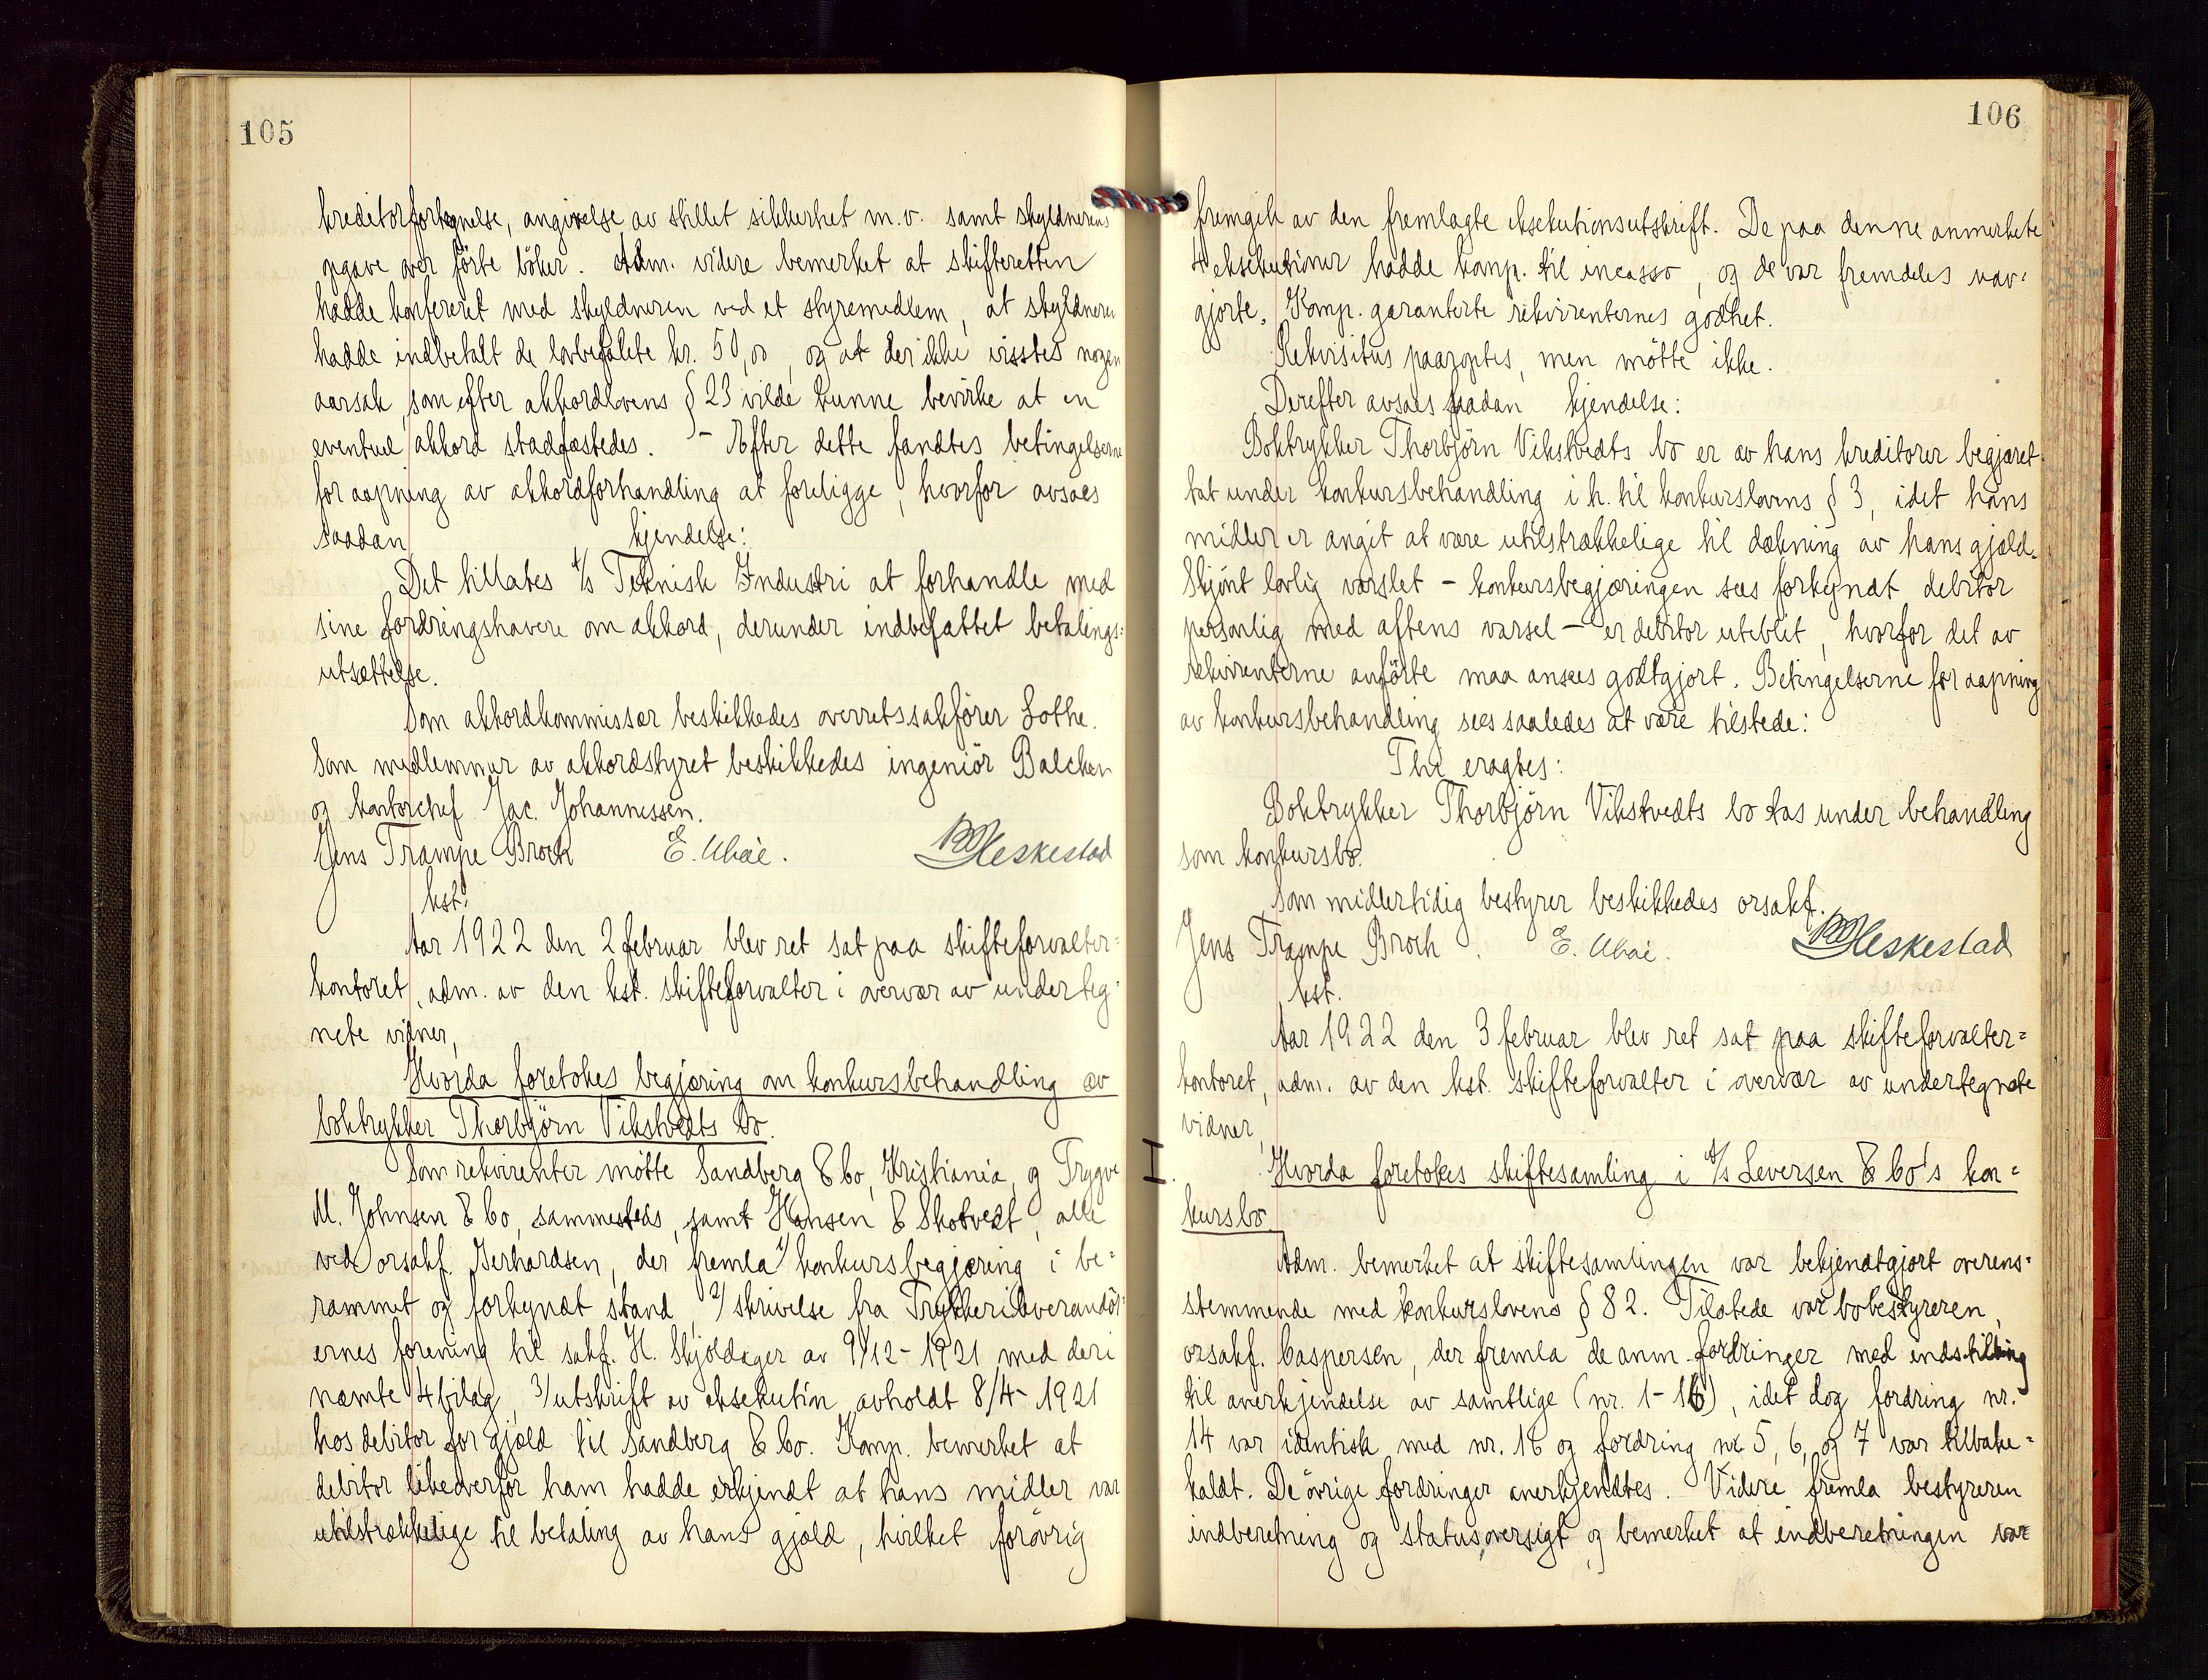 105
kreditorfortegnelse, angivelse av stillet sikkerhet m.v. samt skyldnerens
opgave over førte bøker. Adm. videre bemerket at skifteretten
hadde konfereret med skyldneren ved et styremedlem, at skyldneren
hadde indbetalt de lovbefalete kr. 50,00, og at der ikke visstes nogen
aarsak, som efter akkordlovens § 23 vilde kunne bevirke at en
eventuel akkord stadfæstedes. - Efter dette fandtes betingelserne
for aapning av akkordforhandling at foreligge, hvorfor avsaes
saadan kjendelse:
Det tillates A/S Teknisk Industri at forhandle med
sine fordringshavere om akkord, derunder indbefattet betalings=
utsættelse.
Som akkordkommissær beskikkedes overretssakfører Lothe.
Som medlemmer av akkordstyret beskikkedes ingeniør Balchen
og kontorchef Jac. Johannessen.
Jens Trampe Broch E. Ubøe. Heskestad
kst.
Aar 1922 den 2 februar blev ret sat paa skifteforvalter=
kontoret, adm. av den kst. skifteforvalter i overvær av underteg=
nete vidner,
Hvorda foretokes begjæring om konkursbehandling av
boktrykker Thorbjörn Vikstvedts bo.
Som rekvirenter møtte Sandberg & Co, Kristiania, og Trygve
M. Johnsen & Co, sammesteds, samt Hansen & Skotvedt, alle
ved orsakf. Gerhardsen, der fremla 1/ konkursbegjæring i be=
rammet og forkyndt stand, 2/ skrivelse fra Trykkerileverandör=
ernes forening til sakf. H. Skjöldager av 9/12-1921 med deri
nævnte 4 bilag, 3/ utskrift av eksekution avholdt 8/4-1921
hos debitor for gjæld til Sandberg & Co. Komp. bemerket at
debitor likeoverfor ham hadde erkjendt at hans midler var
utilstrækkelige til betaling av hans gjæld, hvilket forövrig
106
fremgik av den fremlagte eksekutionsutskrift. De paa denne anmerkete
4 eksekutioner hadde komp. til incasso, og de var fremdeles uav=
gjorte. Komp. garanterte rekvirenternes godhet.
Rekvisitus paaroptes, men mötte ikke.
Derefter avsaes saadan kjendelse:
Boktrykker Thorbjörn Vikstvedts bo er av hans kreditorer begjæret
tat under konkursbehandling i h. til konkurslovens § 3, idet hans
midler er angit at være utilstrækkelige til dækning av hans gjæld.
Skjönt lovlig varslet - konkursbegjæringen sees forkyndt debitor
personlig med aftens varsel - er debitor uteblit, hvorfor det av
rekvirenterne anförte maa ansees godtgjort. Betingelserne for aapning
av konkursbehandling sees saaledes at være tilstede:
Thi eragtes:
Boktrykker Thorbjörn Vikstvedts bo tas under behandling
som konkursbo.
Som midlertidig bestyrer beskikkedes orsakf.
Jens Trampe Broch. E. Ubøe. Heskestad
kst.
Aar 1922 den 3 februar blev ret sat paa skifteforvalter=
kontoret, adm. av den kst. skifteforvalter i overvær av undertegnete
vidner,
I. Hvorda foretokes skiftesamling i A/S Leversen & Co's kon=
kursbo.
Adm. bemerket at skiftesamlingen var bekjendtgjort overens=
stemmende med konkurslovens § 82. Tilstede var bobestyreren,
orsakf. Caspersen, der fremla de anm. fordringer med indstilling
til anerkjendelse av samtlige (nr. 1-16), idet dog fordring nr.
14 var identisk med nr. 16 og fordring nr. 5, 6, og 7 var tilbake=
kaldt. De övrige fordringer anerkjendtes. Videre fremla bestyreren
indberetning og statusoversigt og bemerket at indberetningen var